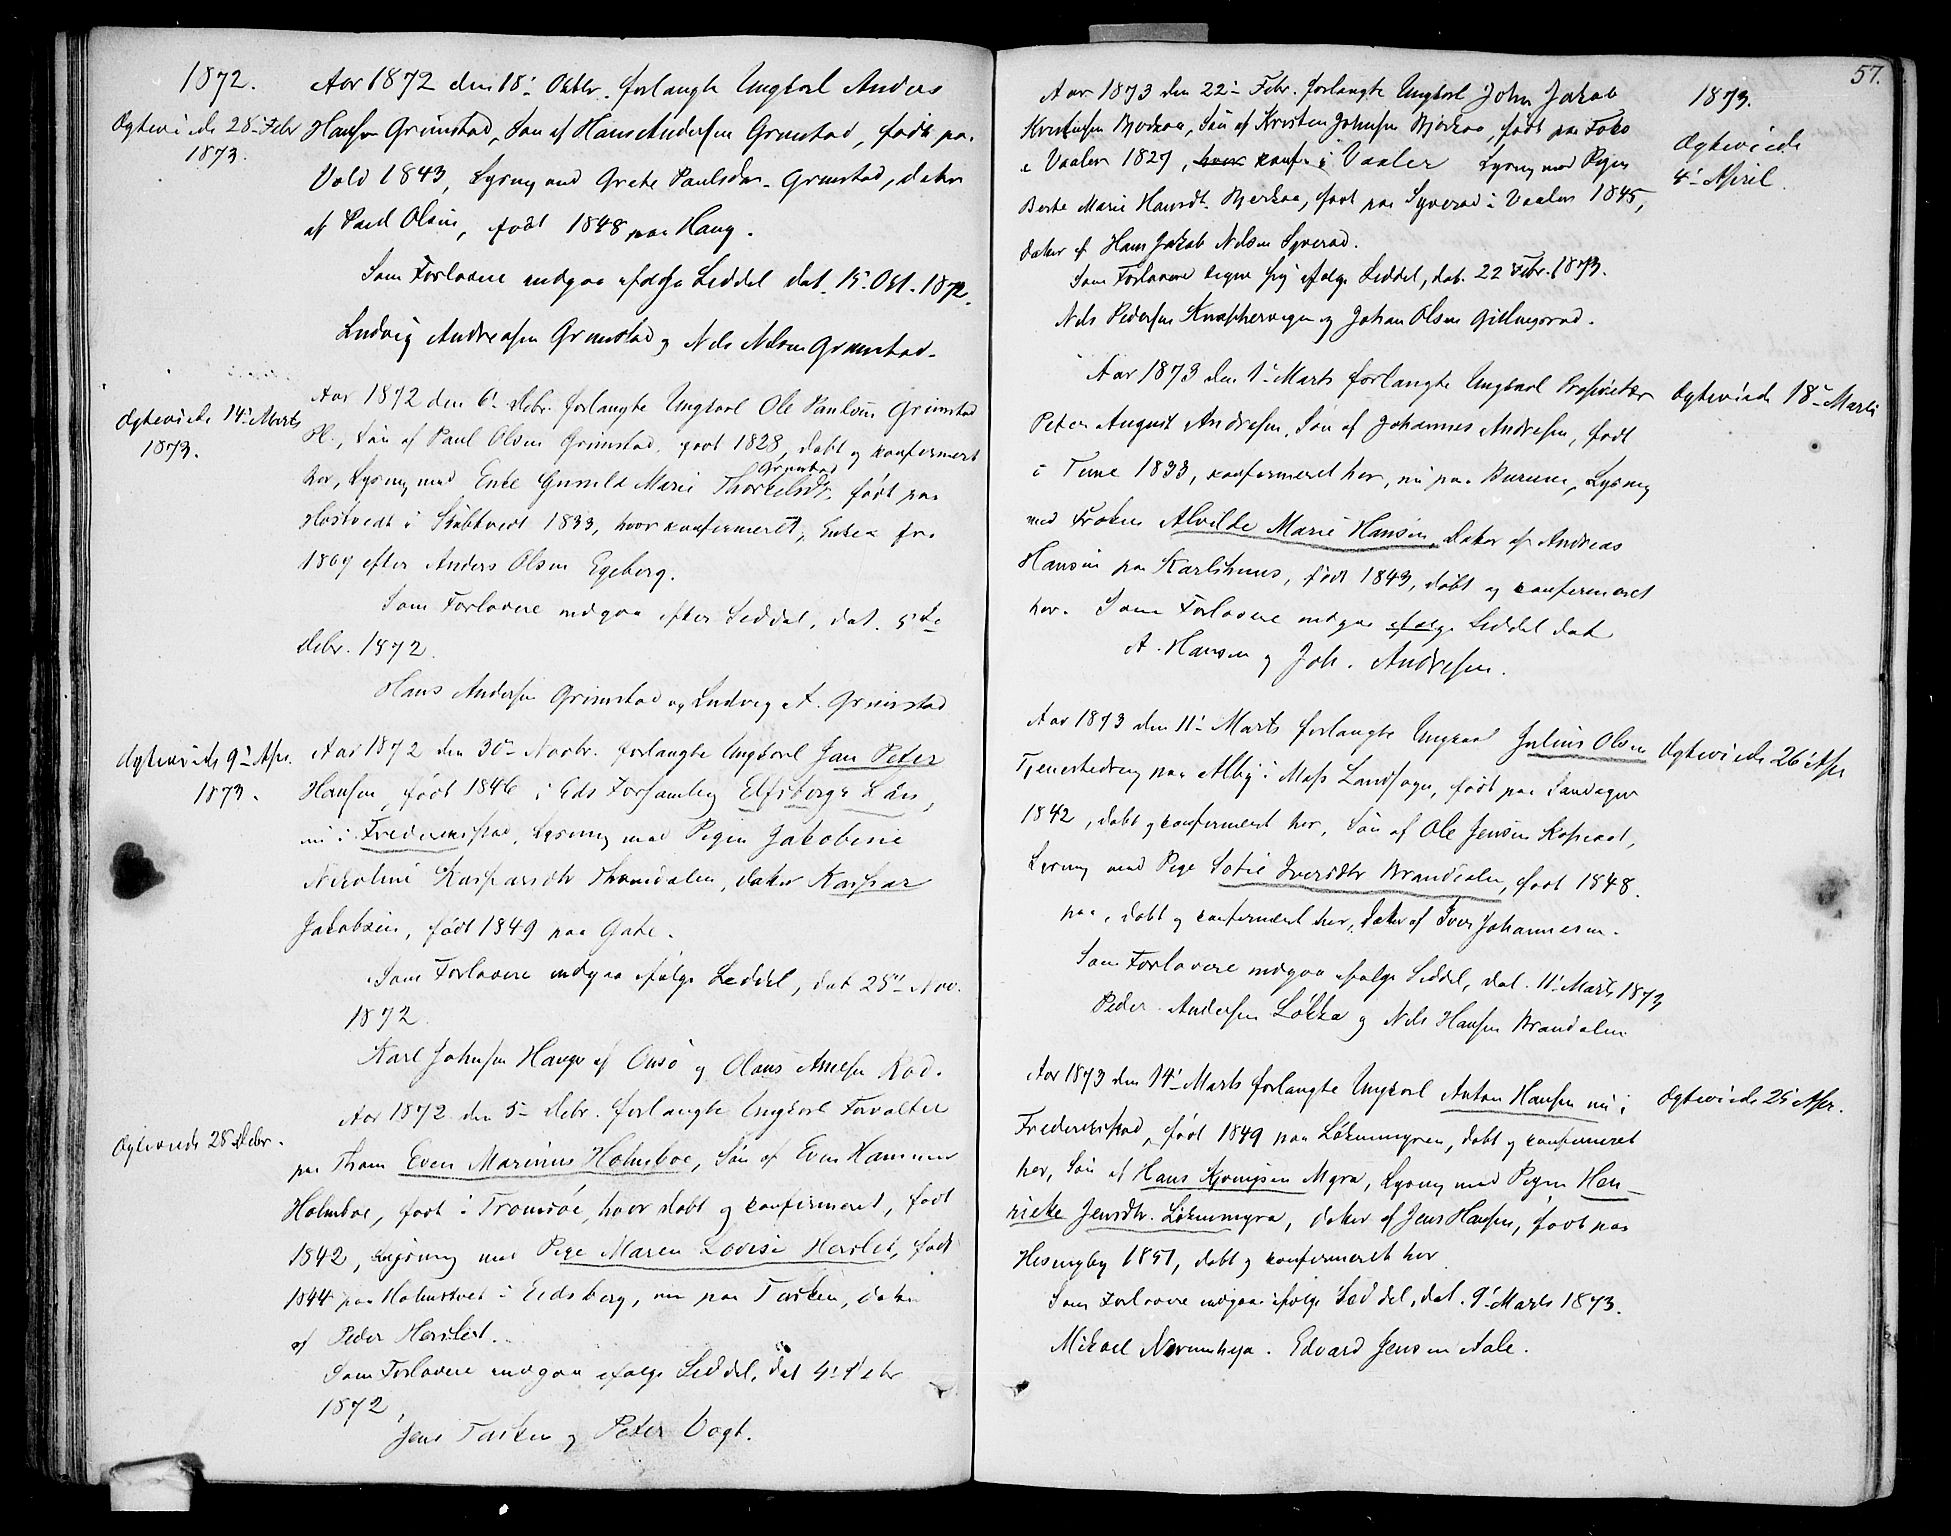 1872.
Ægteviede 28de Febr
1873.
Aar 1872 den 18de Oktbr. forlangte Ungkarl Anders
Hansen Grimstad, Søn af Hans Andersen Grimstad, født paa
Vold 1843, Lysning med Grete Paulsdtr. Grimstad, datter
af Paul Olsen, født 1848 paa Haug.
Som Forlovere indgaa ifølge Seddel dat. 15. Oct. 1872.
Ludvig Andreasen Grimstad og Nils Nilsen Grimstad.
Ægteviede 14de Marts
1873.
Aar 1872 den 6te Debr. forlangte Ungkarl Ole Paulsen Grimstad
Søn af Paul Olsen Grimstad, født 1828, døbt og konfirmert
her, Lysning med Enke Gunild Marie Thorkelsdt. Grimstad født paa
Hostvedt i Skibtvedt 1833, hvor konfirmeret, Enke fra
1869 efter Anders Olsen Egeberg.
Som Forlovere indgaa efter Seddel, dat. 5te
Debr. 1872.
Hans Andersen Grimstad og Ludvig A. Grimstad
Ægteviede 9de Apr.
1873.
Aar 1872 den 30te Novbr. forlangte Ungkarl Jan Peter
Hansen, født 1846 i Eds Forsamling Elfsborgs Län,
nu i Frederikstad, Lysning med Pigen Jakobine
Nicoline Kaspersdtr Thomdalen, datter Kaspar
Jakobsen, født 1849 paa Gate.
Som Forlovere indgaa ifølge Seddel, dat 25de Nov.
1872.
Karl Johnsen Hauge af Onsø og Olaus Arnesen Rød.
Ægteviede 28 Debr.
Aar 1872 den 5te Debr. forlangte Ungkarl Forvalter
paa Thom Even Marinius Holmboe, Søn af Even Hammer
Holmboe, født i Tromsøe, hvor døbt og konfirmeret, født
1842, Lysning med Pige Maren Lovise Herslet, født
1844 paa Holmstvet i Eidsberg, nu paa Tasken, datter
af Peder Herslet.
Som Forlovere indgaa ifølge Seddel, dat 4de Debr
1872,
Jens Tasken og Peter Vogt.
57.
1873.
Ægteviede
4de April.
Aar 1873 den 22de Febr. forlangte Ungkarl John Jakob
Kristensen Bjerkaa, Søn af Kristen Johnsen Bjerkaa, født paa Foko
i Vaaler 1827, hvor konfr i Vaaler Lysning med Pigen
Berte Marie Hansdt. Bjerkaa, født paa Syverød i Vaaler 1845,
datter af Hans Jakob Nilsen Syverød.
Som Forlovere tegne sig ifølge Seddel, dat. 22 Febr. 1873.
Nils Pedersen Knaphervegen og Johan Olsen Gillingsrød.
Ægteviede 18de Marts
Aar 1873 den 1de Marts forlangte Ungkarl Proprietær
Peter August Andresen, Søn af Johannes Andresen, født
i Tune 1833, konfirmeret her, nu paa Burum, Lysning
med Frøken Alvilde Marie Hansen, datter af Andreas
Hansen paa Karlshuus, født 1843, døbt og konfirmeret
her. Som Forlovere indgaa ifølge Seddel dat
A. Hansen og Joh. Andresen.
Ægteviede 26de Apr
Aar 1873 den 11te Marts forlangte Ungkarl Julius Olsen
Tjenestedreng paa Alby i Moss Landsogn, født paa Sandager
1842, døbt og konfirmeret her, Søn af Ole Jensen Kopsaat,
Lysning med Pige Sofie Iversdtr Brandalen, født 1848.
paa , døbt og konfirmeret her, datter af Iver Johannesen.
Som Forlovere indgaa ifølge Seddel, dat. 11te Marts 1873
Peder Andersen Løkka og Nils Hansen Brandalen
Ægteviede 25de Apr.
Aar 1873 den 14de Marts forlangte Ungkarl Anton Hansen nu i
Frederikstad, født 1849 paa Løkenmyren, døbt og konfirmeret
her, Søn af Hans Myra, Lysning med Pigen Hen-
rieke Jensdtr. Løkenmyra, datter af Jens Hansen, født paa
Hesnegby 1851, døbt og konfirmeret her
Som Forlovere indgaa ifølge Seddel, dat. 9de Marts 1873.
Mikael. Edvard Jensen Aale.